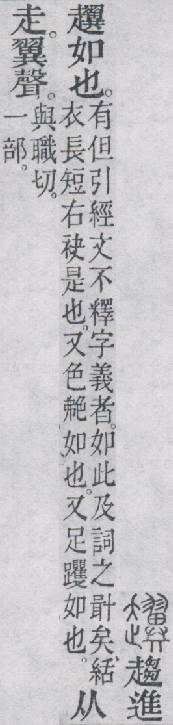 趨進
𧾰如也。有但引經文不釋字義者。如此及詞之𠦬矣、絬
衣長短右袂是也。又色艴如也。又足躩如也。从
走。翼聲。與職切。
一部。